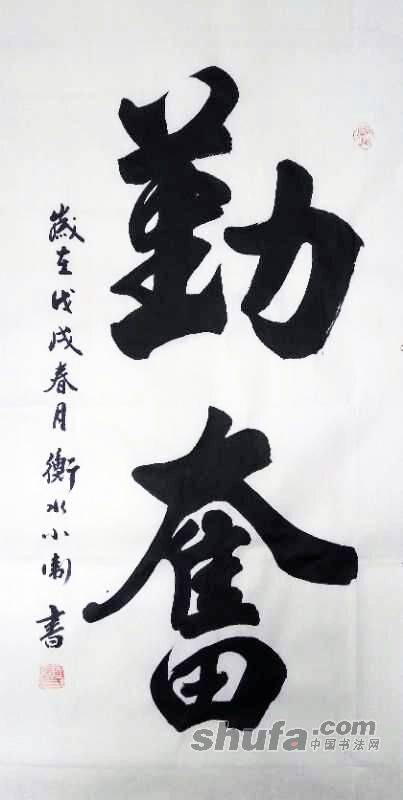 勤奮
歲在戊戌春月衡水小衛書
shufa.com
中国书法网